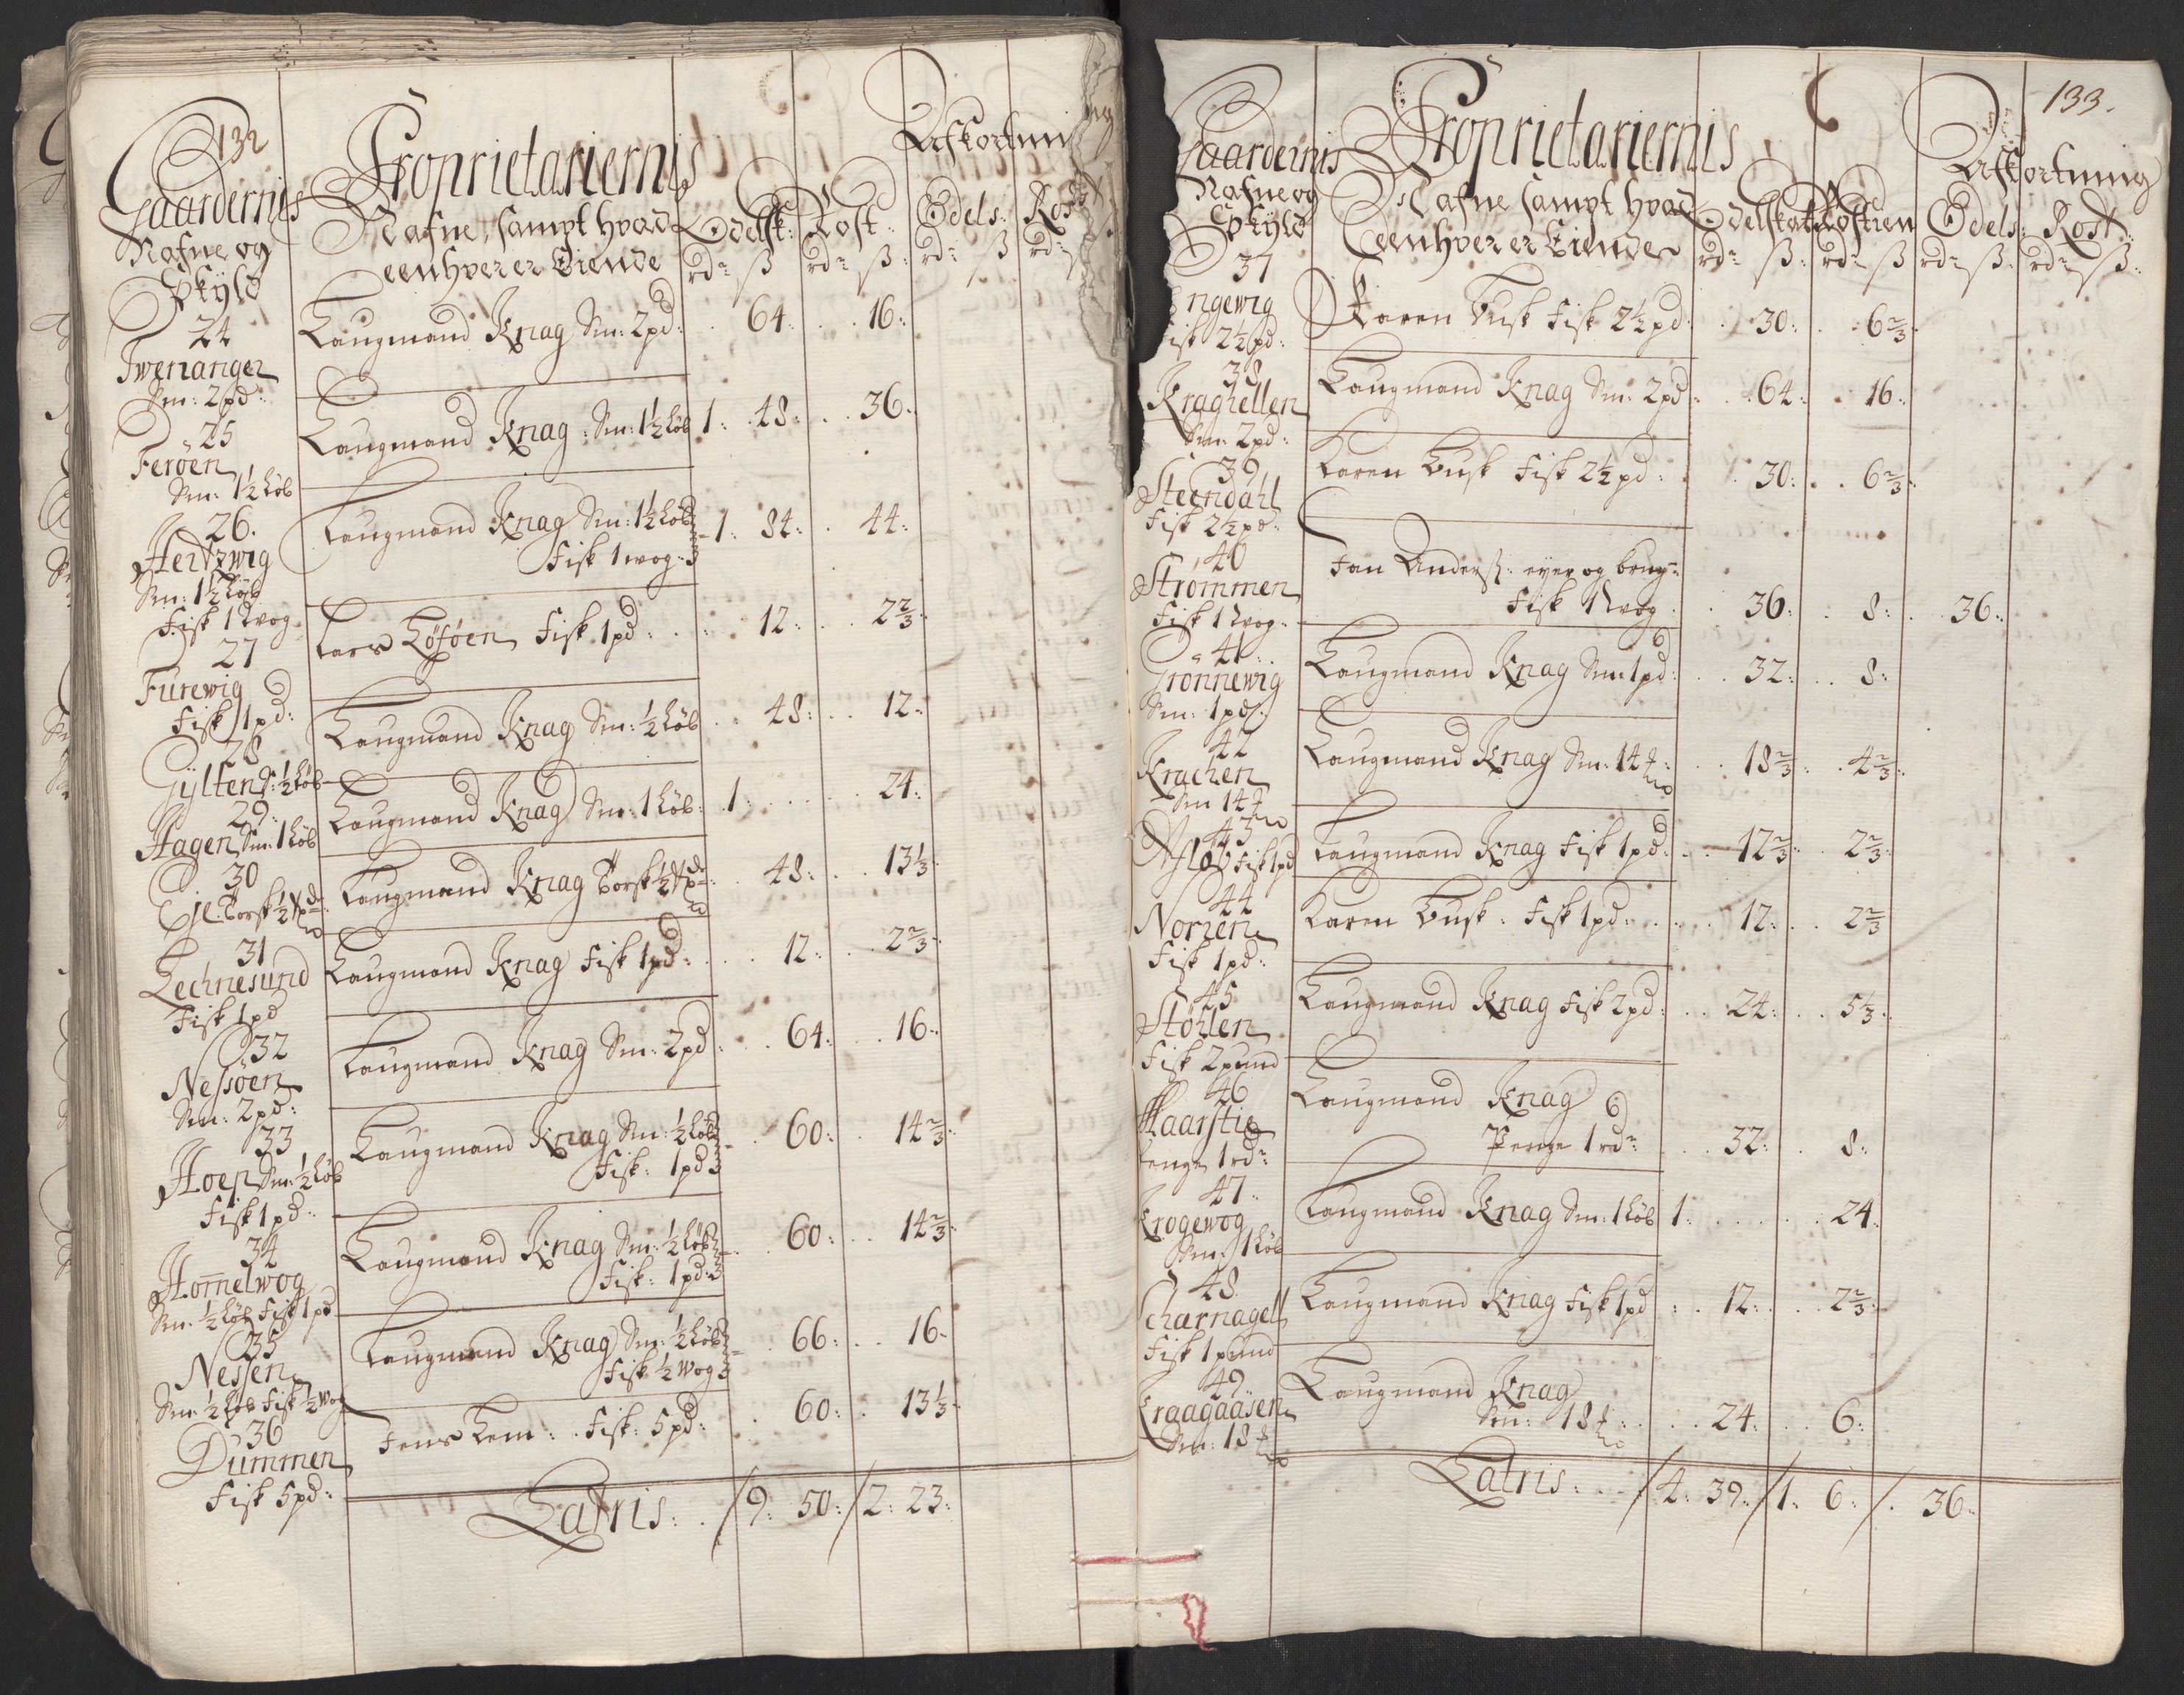 132
Gaardernis
Nafne og
Skyld
Proprietariernis
Nafne, sampt hvad
eenhver er Eiende
Afkortning
Odelsk: Rost: Odels: Rost
rdr ß rdr ß: rdr ß rdr ß
24
Twenanger
Sm: 2 pd:
Laugmand Knag Sm: 2 pd: 64: 16:
25
Feröen
Sm: 1½ Løb
Laugmand Knag: Sm: 1½ Løb 1: 48: 36:
26.
Hertzwig
Sm: 1½ Løb
Fisk 1 wog
Laugmand Knag Sm: 1½ Løb
Fisk 1 wog: 1: 84: 44:
27
Furewig
Fisk 1 pd:
Lars Loföen Fisk 1 pd: 12: 2⅔:
28
Gylten S: ½ Løb
Laugmand Knag Sm: ½ Løb 48: 12:
29:
Hagen Sm: 1 Løb
Laugmand Knag Sm: 1 Løb: 1: 24:
30
Torsk ½
Laugmand Knag Torsk ½ 48: 13⅓:
31
Lechnesund
Fisk 1 pd
Laugmand Knag Fisk 1 pd: 12: 2⅔:
32
Nessöen
Sm: 2 pd:
Laugmand Knag Sm: 2 pd: 64: 16:
33
Hoep Sm: ½ Løb
Fisk 1 pd:
Laugmand Knag Sm: ½ Løb
Fisk: 1 pd 60: 14⅔:
34
Hornelwog
Sm: ½ Løb Fisk 1 pd
Laugmand Knag Sm: ½ Løb
Fisk: 1 pd: 60: 14⅔:
35
Nessen
Sm: ½ Løb Fisk ½ Wog
Laugmand Knag Sm: ½ Løb
Fisk ½ Wog 66: 16:
36
Dümmen
Fisk 5 pd:
Jens Lem: Fisk: 5 pd: 60: 13⅓:
Latris: / 9: 50: / 2: 23:
133.
Gaardernis
Nafne og
Skyld
Proprietariernis
Nafne sampt hvad
eenhver er Eiende
Afkortning
Odelskat Rostien Odels: Rost:
rdr ß: rdr ß rdr ß: rdr ß:
37
Ingewig
Fisk 2½ pd:
Karen Busk Fisk 2½ pd: 30: 6⅔:
38
Kraghellen
Sm: 2 pd:
Laugmand Knag Sm: 2 pd: 64: 16:
39
Steendahl
Fisk 2½ pd:
Karen Busk Fisk 2½ pd: 30: 6⅔:
40
Strommen
Fisk 1 wog:
Jan Anderß: eyer og brug:
Fisk 1 wog: 36: 8: 36:
41
Gronnewig
Sm: 1 pd:
Laugmand Knag Sm: 1 pd: 32: 8:
42
Krachen
Sm 14
Laugmand Knag Sm: 14 18⅔: 4⅔:
43
Fisk 1 pd
Laugmand Knag Fisk 1 pd: 12⅔: 2⅔:
44
Fisk 1 pd:
Karen Busk: Fisk 1 pd: 12: 2⅔
45
Fisk 2 pund
Laugmand Knag Fisk 2 pd: 24: 5⅓:
46
Skaarstie
Penge 1 rdr:
Laugmand Knag
Penge 1 rdr 32: 8:
47:
Krogewog
Sm: 1 Løb
Laugmand Knag Sm: 1 Løb 1: 24:
48
Scharnagell
Fisk 1 pund
Laugmand Knag Fisk 1 pd: 12: 2⅔:
49
Kraagaasen
Sm: 18
Laugmand Knag
Sm: 18 24: 6:
Latris: / 4: 39: / 1: 6: / 36: